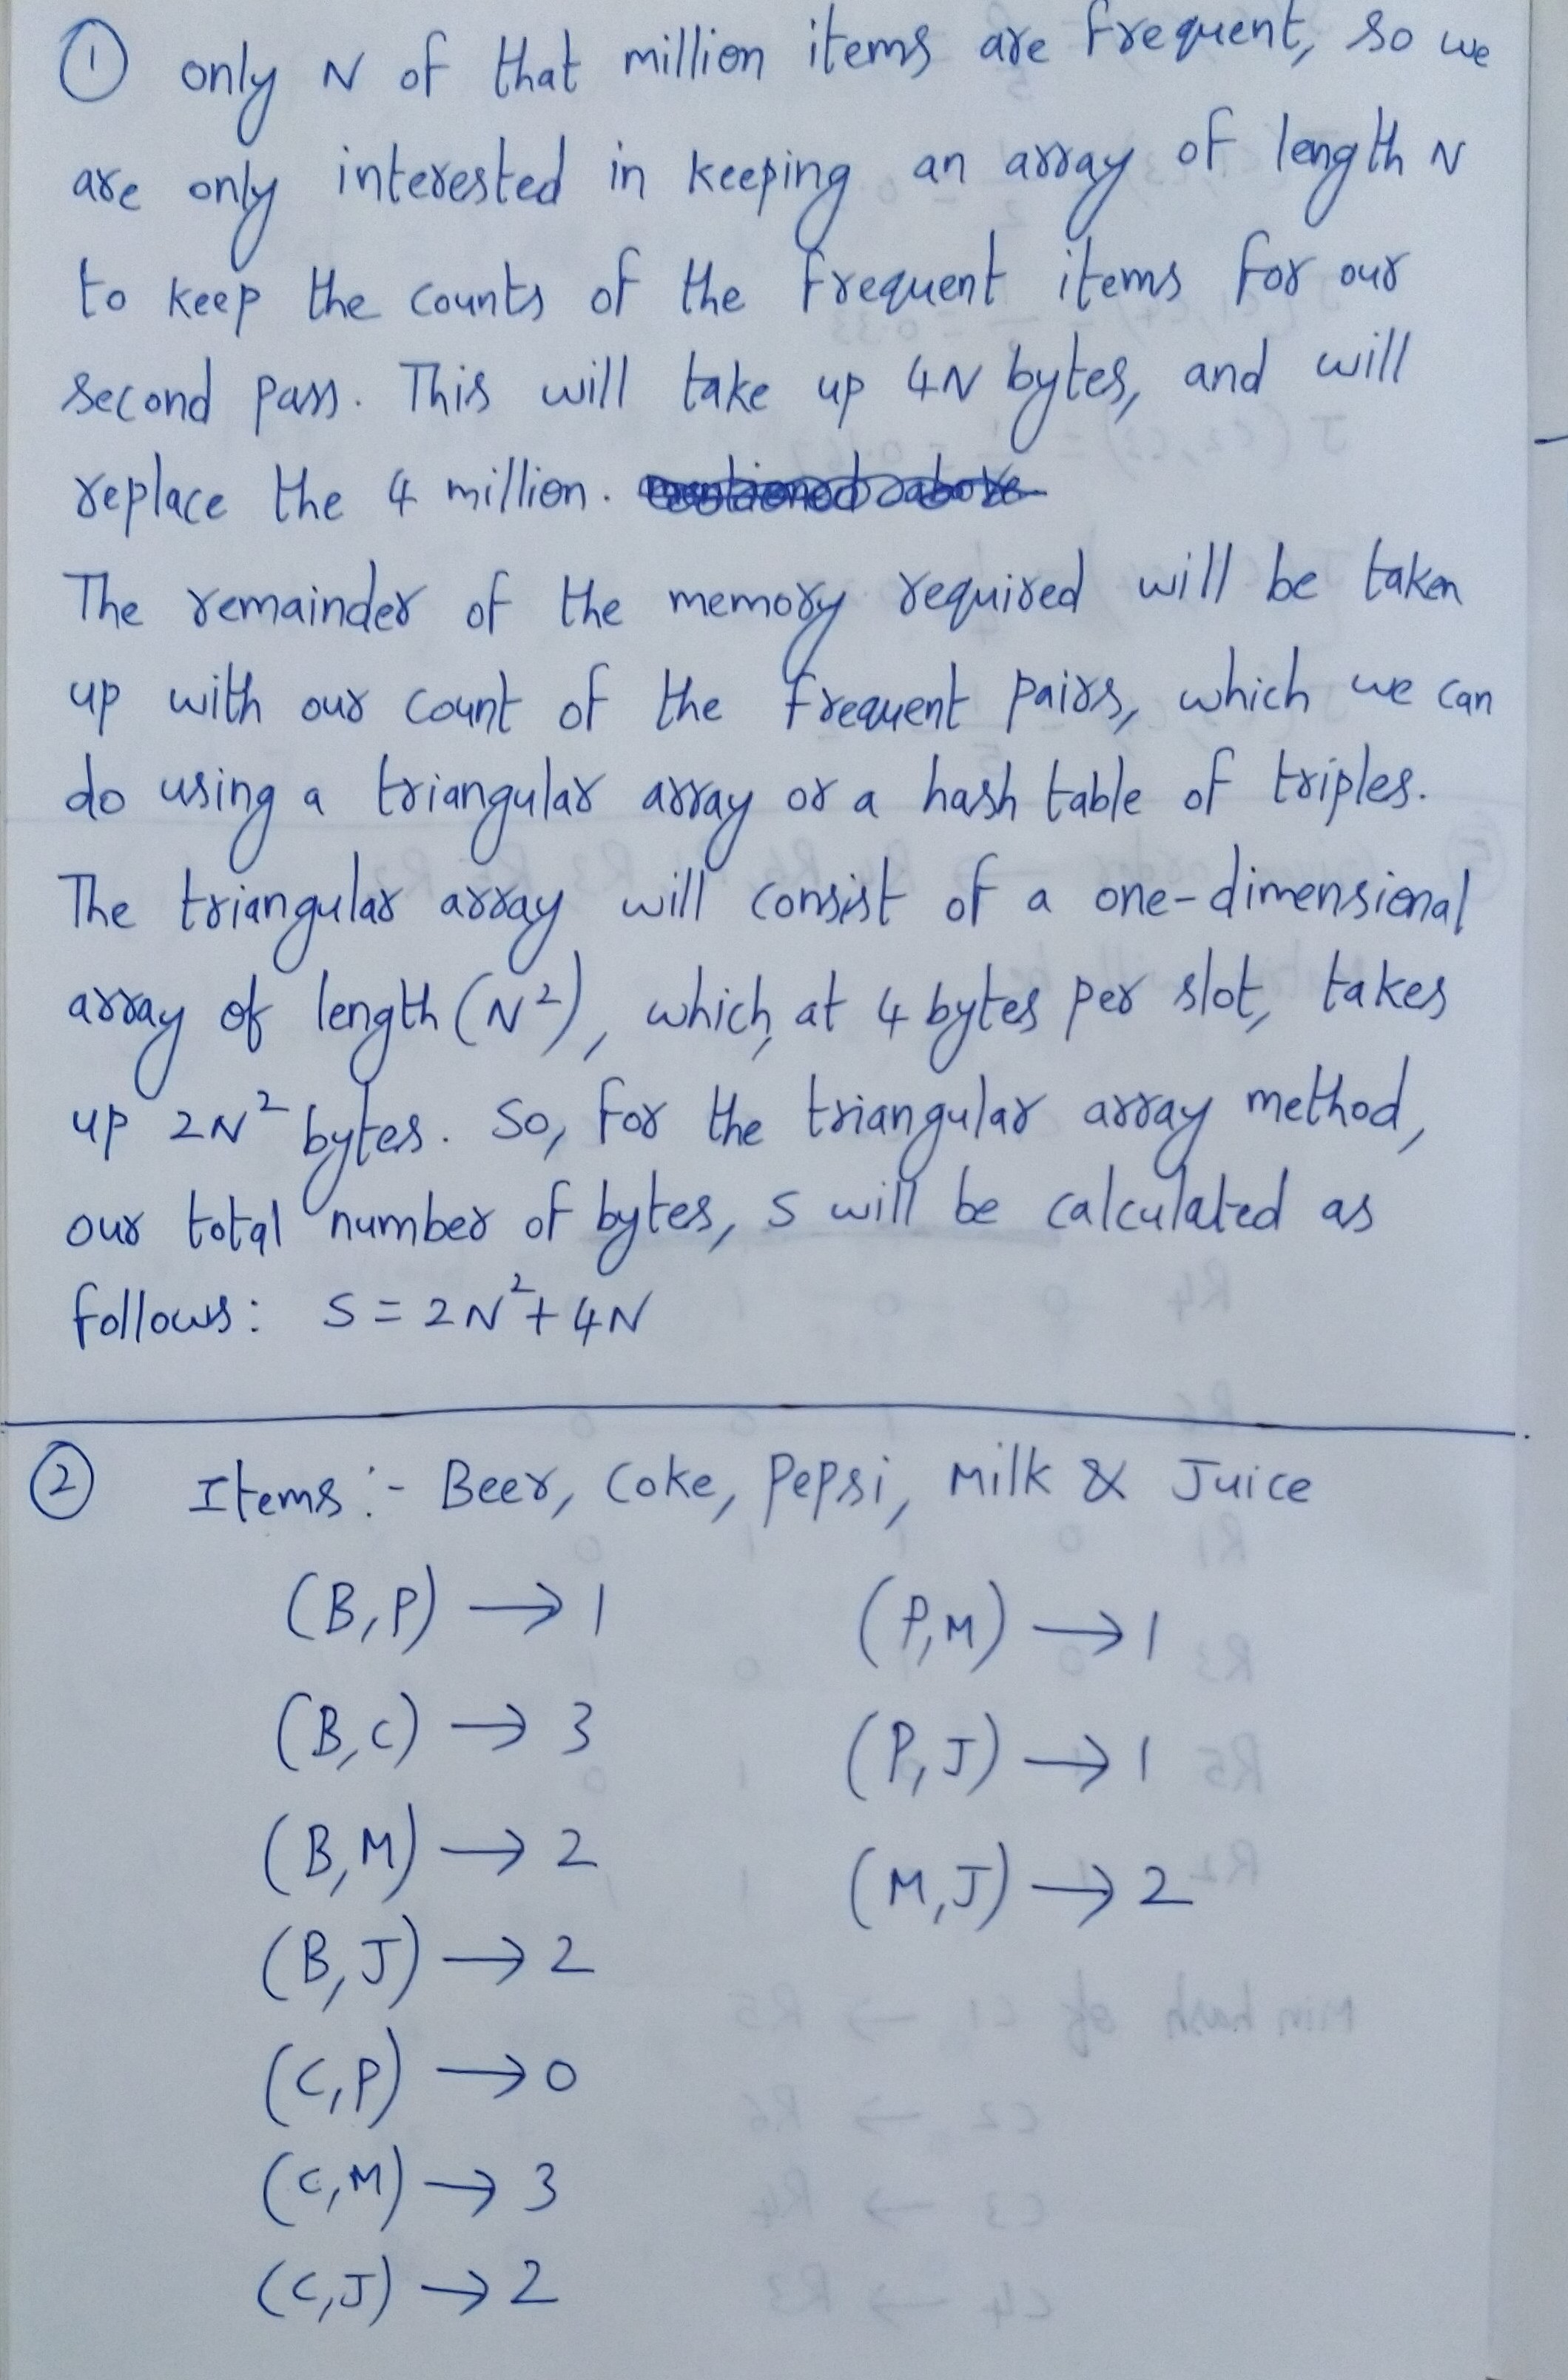 ① only N of that million items are frequent, so we
are only interested in keeping an array of length N
to keep the counts of the frequent items for our
second pass. This will take up 4N bytes, and will
replace the 4 million.
The remainder of the memory required will be taken
up with our count of the frequent pairs, which we can
do using a triangular array or a hash table of triples.
The triangular array will consist of a one-dimensional
array of length (N²), which, at 4 bytes per slot, takes
up 2N² bytes. So, for the triangular array method,
our total number of bytes, S will be calculated as
follows: S = 2N² + 4N
② Items :- Beer, Coke, Pepsi, Milk & Juice
(B,P) → 1
(B,C) → 3
(B,M) → 2
(B,J) → 2
(C,P) → 0
(C,M) → 3
(C,J) → 2
(P,M) → 1
(P,J) → 1
(M,J) → 2